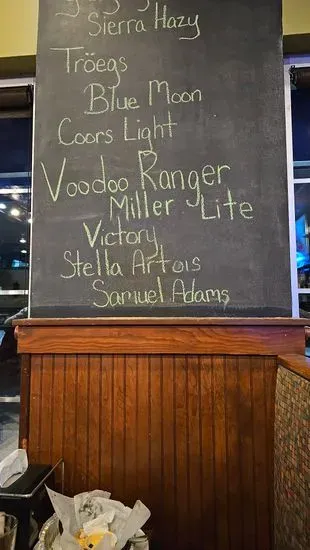 Sierra Hazy
Tröegs
Blue Moon
Coors Light
Voodoo Ranger
Miller Lite
Victory
Stella Artois
Samuel Adams